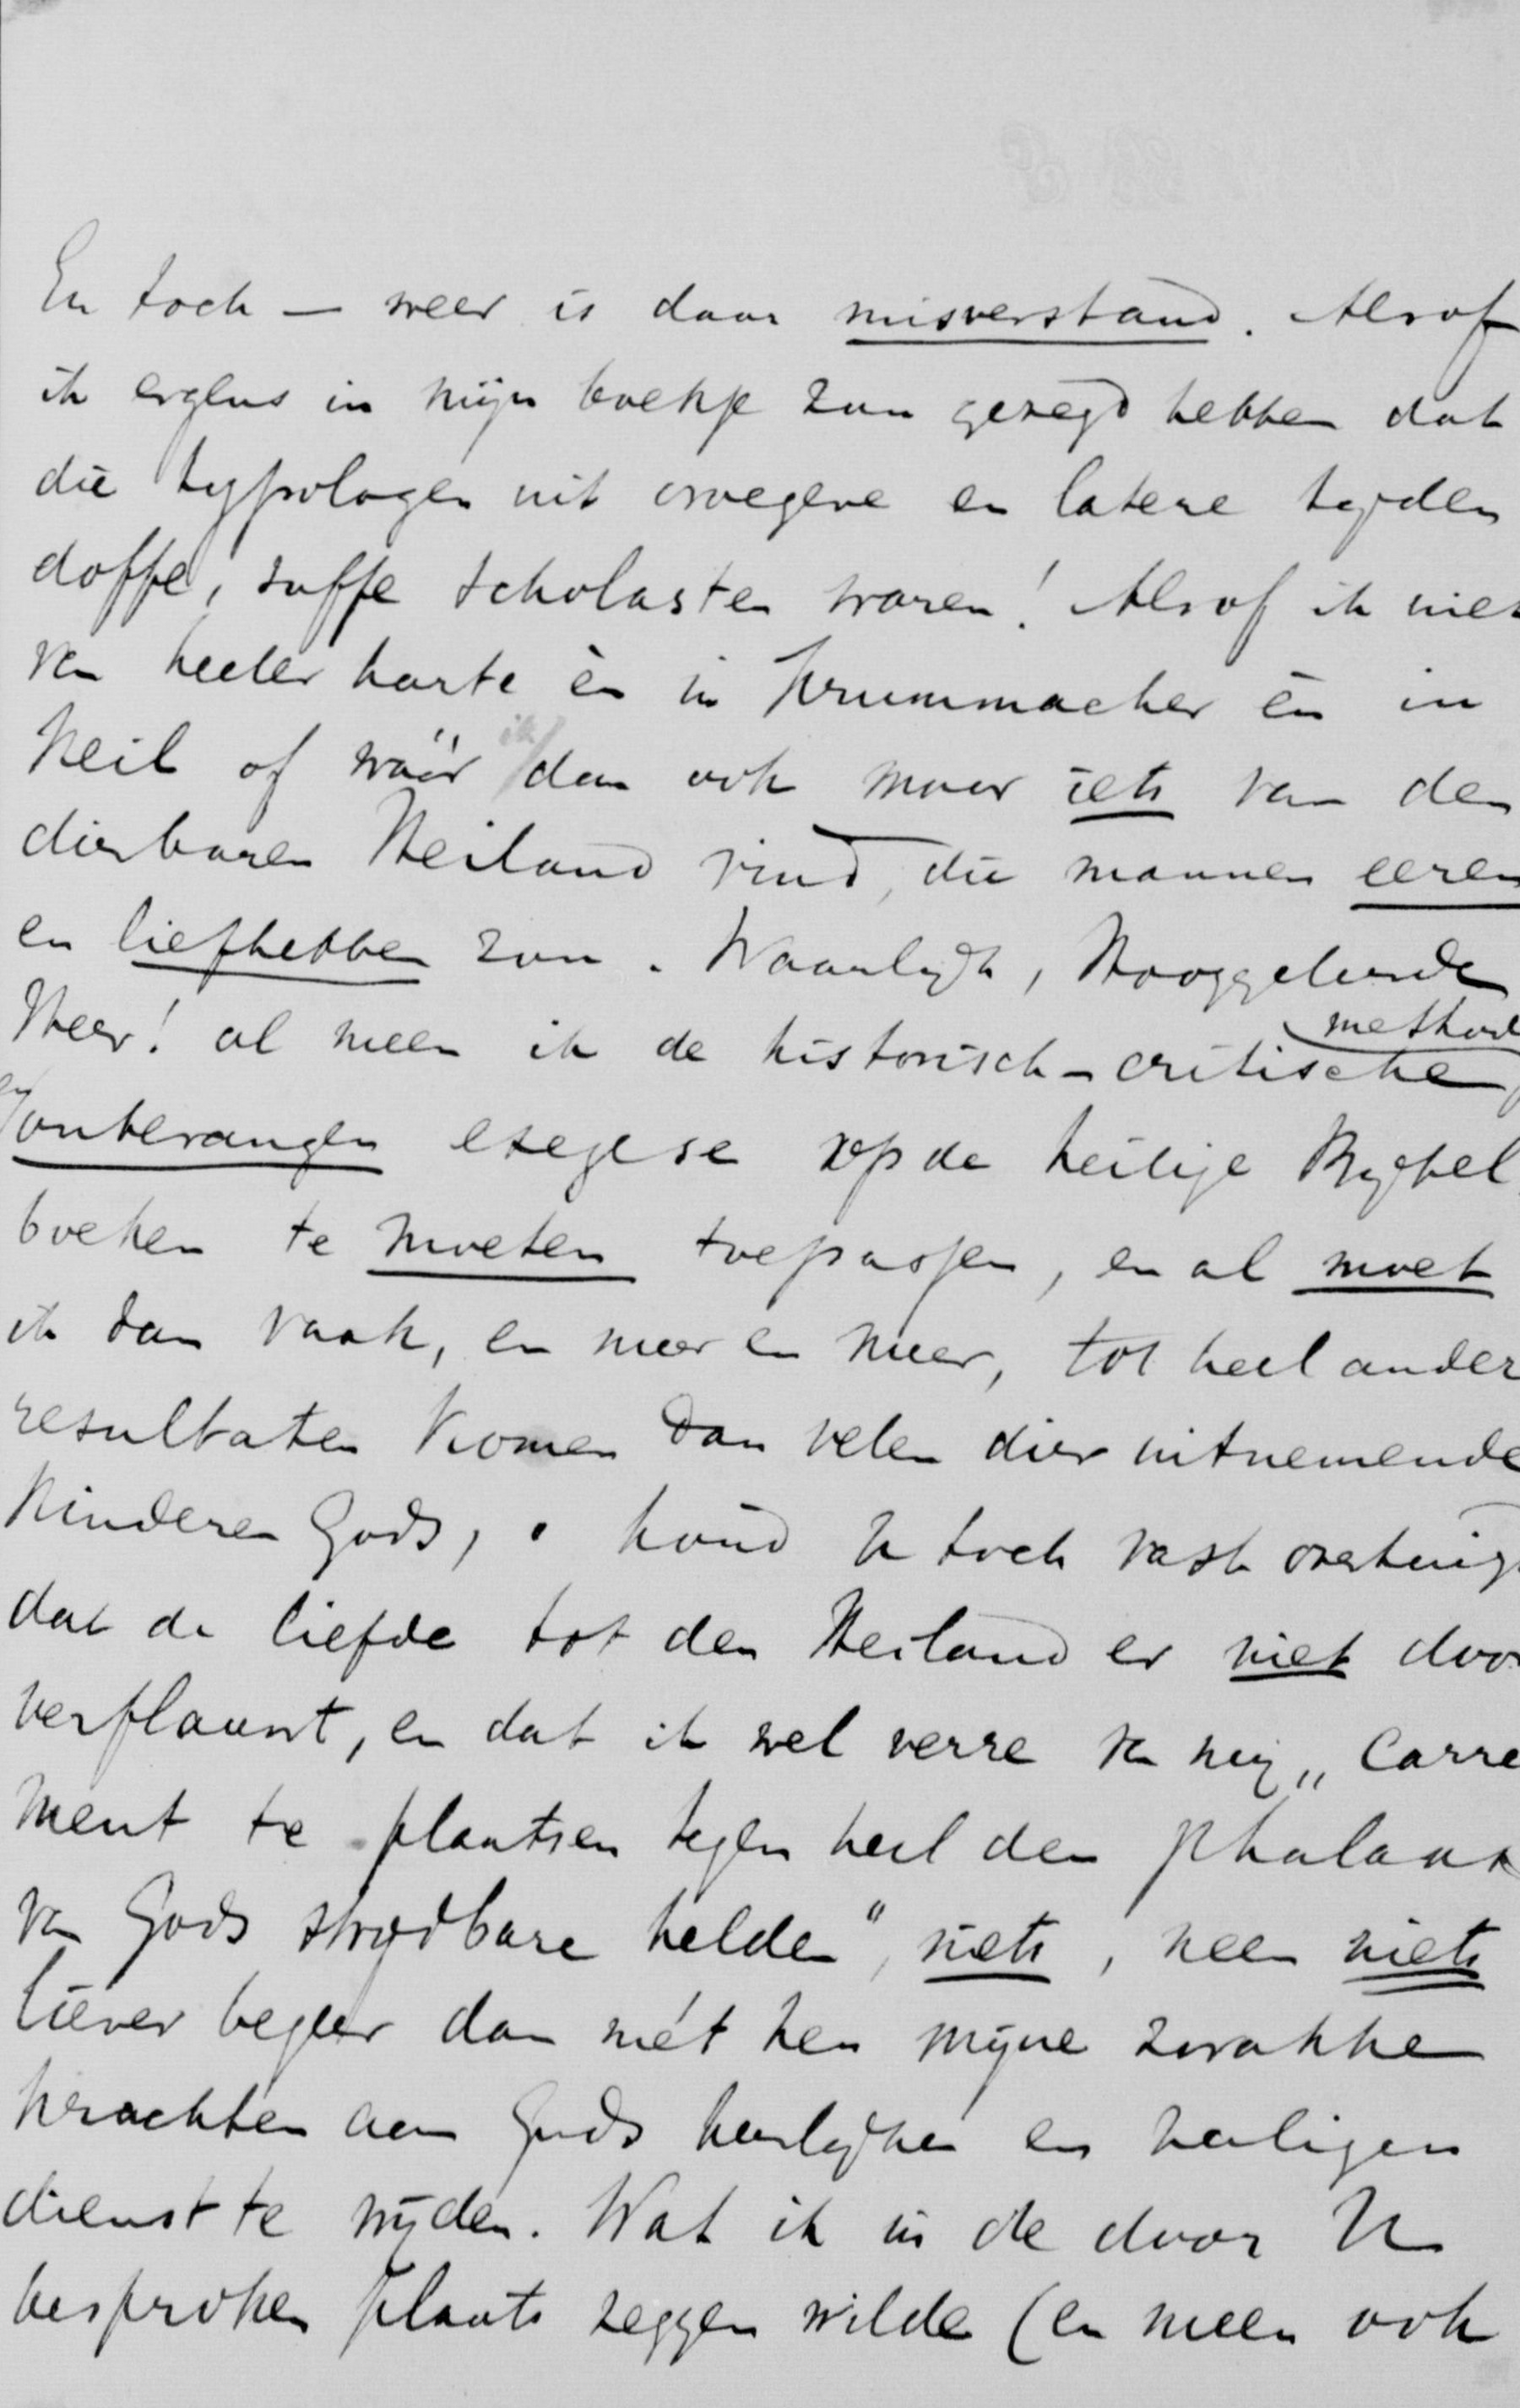 En toch — weer is daar misverstand. Alsof
ik ergens in mijn boekje zou gezegd hebben dat
die typologen uit vroegere en latere tyden
doffe, suffe scholasten waren! Alsof ik niet
van heeler harte èn in Krummacher èn in
Keil of wáár ik dan ook maar iets van den
dierbaren Heiland vind, die mannen eeren
en liefhebben zou. Waarlyk, Hooggeleerde
Heer! al meen ik de historisch-critische methode
en onbevangen exegese op de heilige Bybel
boeken te moeten toepassen, en al moet
ik dan vaak, en meer en meer, tot heel ander
resultaten komen dan velen dier uitnemende
kinderen Gods, houd U toch vast overtuigd
dat de liefde tot den Heiland er niet door
verflauwt, en dat ik wel verre van mij „carré
ment te plaatsen tegen heel den phalanx
van Gods strydbare helden", niets, neen niets
liever begeer dan mét hen mijne zwakke
krachten aan Gods heerlyken en heiligen
dienst te wijden. Wat ik in de door U
besproken plaats zeggen wilde (en meen ook